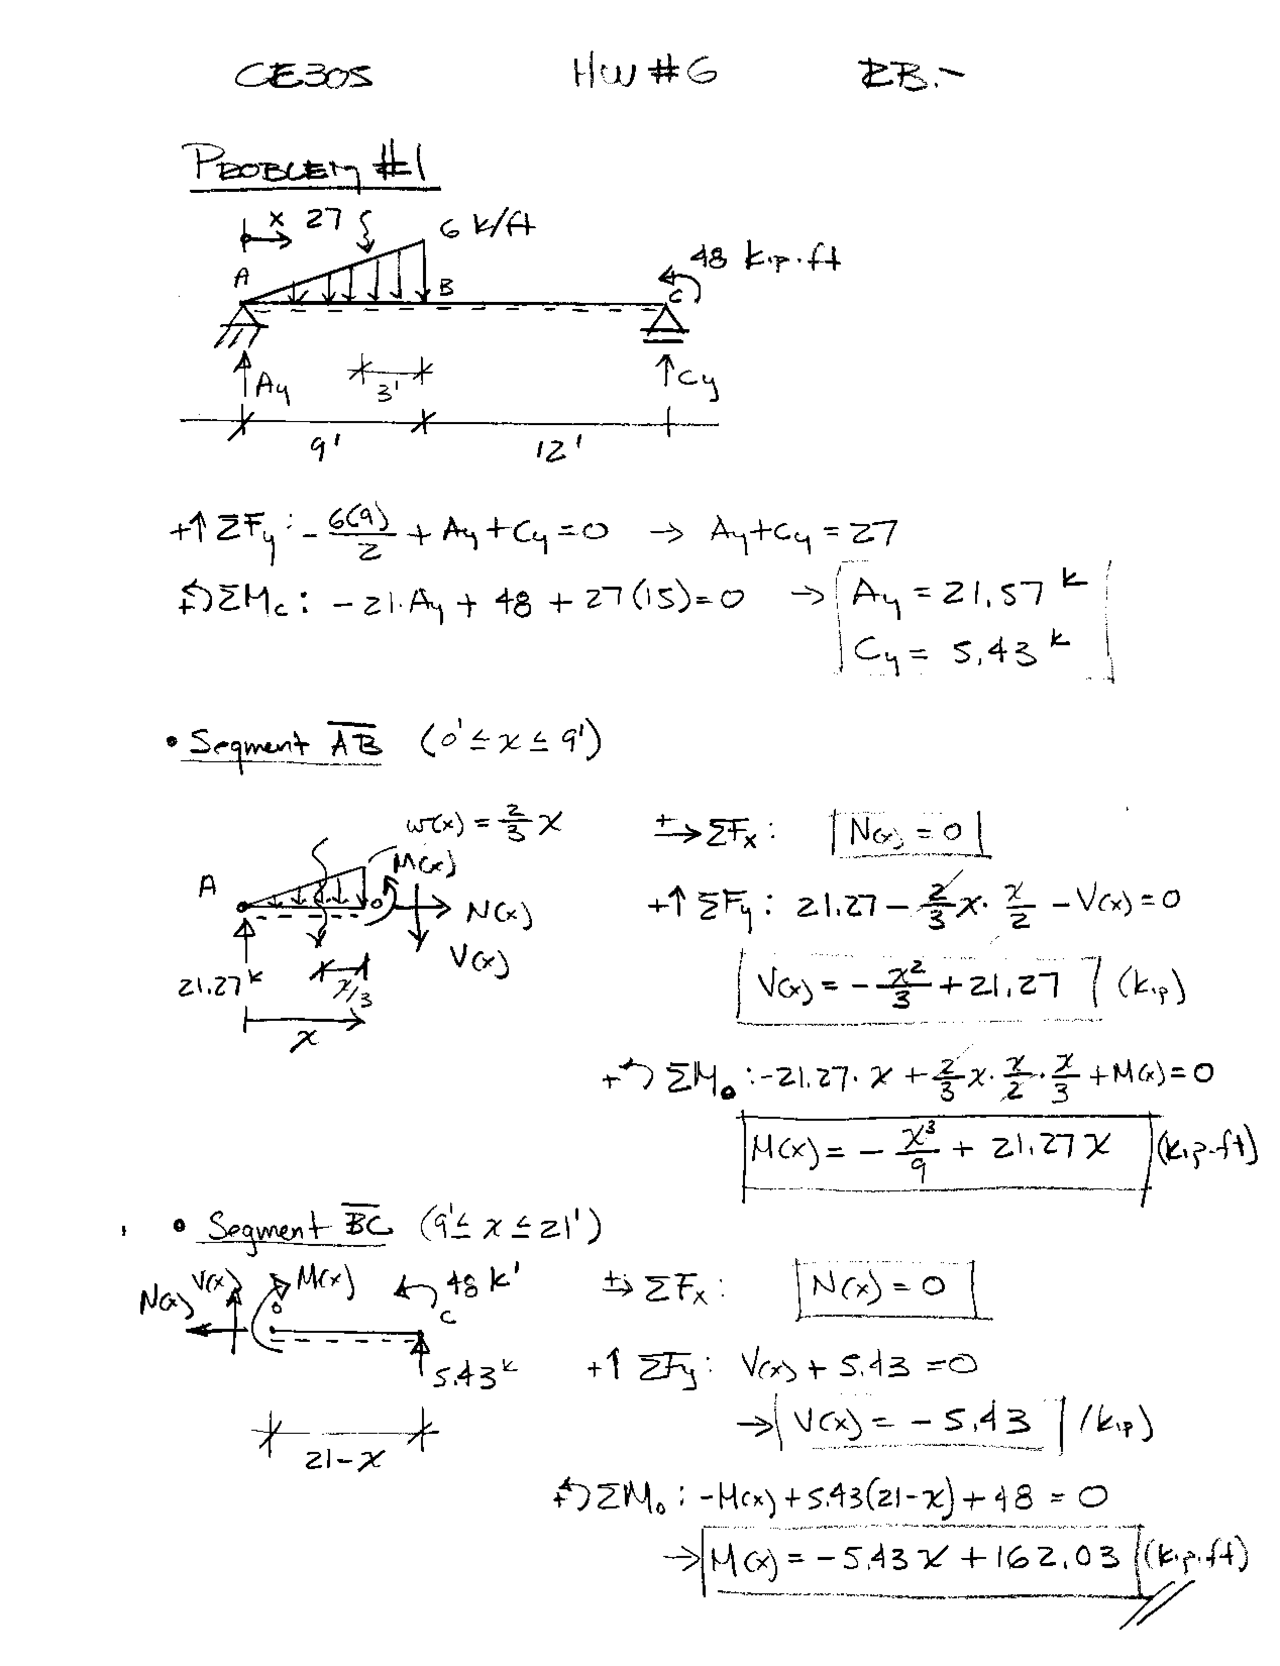 CE305 HW #6 RB.-
PROBLEM #1
x 27 6 k/ft
48 kip.ft
A B C
Ay 3' Cy
9' 12'
+↑ ΣFy: - 6(9)/2 + Ay + Cy = 0 → Ay + Cy = 27
+↺ ΣMc: -21·Ay + 48 + 27(15) = 0 → Ay = 21.57 k
Cy = 5.43 k
• Segment AB (0' ≤ x ≤ 9')
w(x) = 2/3 x
A M(x) N(x) V(x)
21.27 k x/3
x
+→ ΣFx: N(x) = 0
+↑ ΣFy: 21.27 - 2/3 x · x/2 - V(x) = 0
V(x) = - x²/3 + 21.27 (kip)
+↺ ΣMo: -21.27 · x + 2/3 x · x/2 · x/3 + M(x) = 0
M(x) = - x³/9 + 21.27x (kip-ft)
• Segment BC (9' ≤ x ≤ 21')
N(x) V(x) o M(x) 48 k' C
5.43 k
21-x
+→ ΣFx: N(x) = 0
+↑ ΣFy: V(x) + 5.43 = 0
→ V(x) = -5.43 (kip)
+↺ ΣMo: -M(x) + 5.43(21-x) + 48 = 0
→ M(x) = -5.43x + 162.03 (kip.ft)